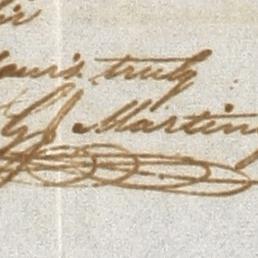 Yours truly
G J Martin